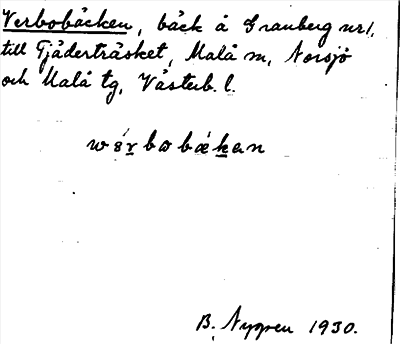 Verbobäcken, bäck å Granberg nr 1,
till Tjäderträsket, Malå sn, Norsjö
och Malå tg, Västerb. l.
B. Nygren 1930.